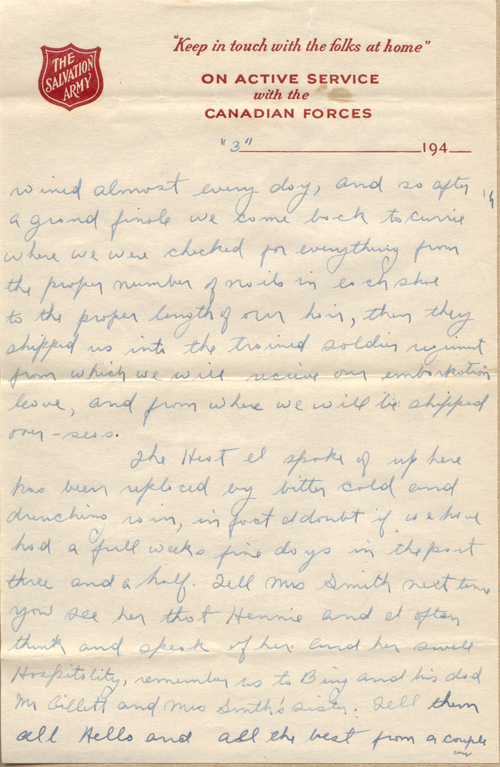 THE
SALVATION
ARMY
"Keep in touch with the folks at home"
ON ACTIVE SERVICE
with the
CANADIAN FORCES
"3" 194
rained almost every day, and so after
a grand finale we come back to Currie
where we were checked for everything from
the proper number of nails in each shoe
to the proper length of our hair, then they
shipped us into the trained soldier regiment
from which we will recieve our embarkation
leave, and from where we will be shipped
over-seas.
The Heat I spoke of up here
has been replaced by bitter cold and
drenching rain, in fact I doubt if we have
had a full weeks fine days in the past
three and a half. Tell Mrs Smith next time
you see her that Hennie and I often
think and speak of her and her swell
Hospitality, remember us to Bing and his dad
Mr Gillett and Mrs Smith's sister. Tell them
all Hello and all the best from a couple